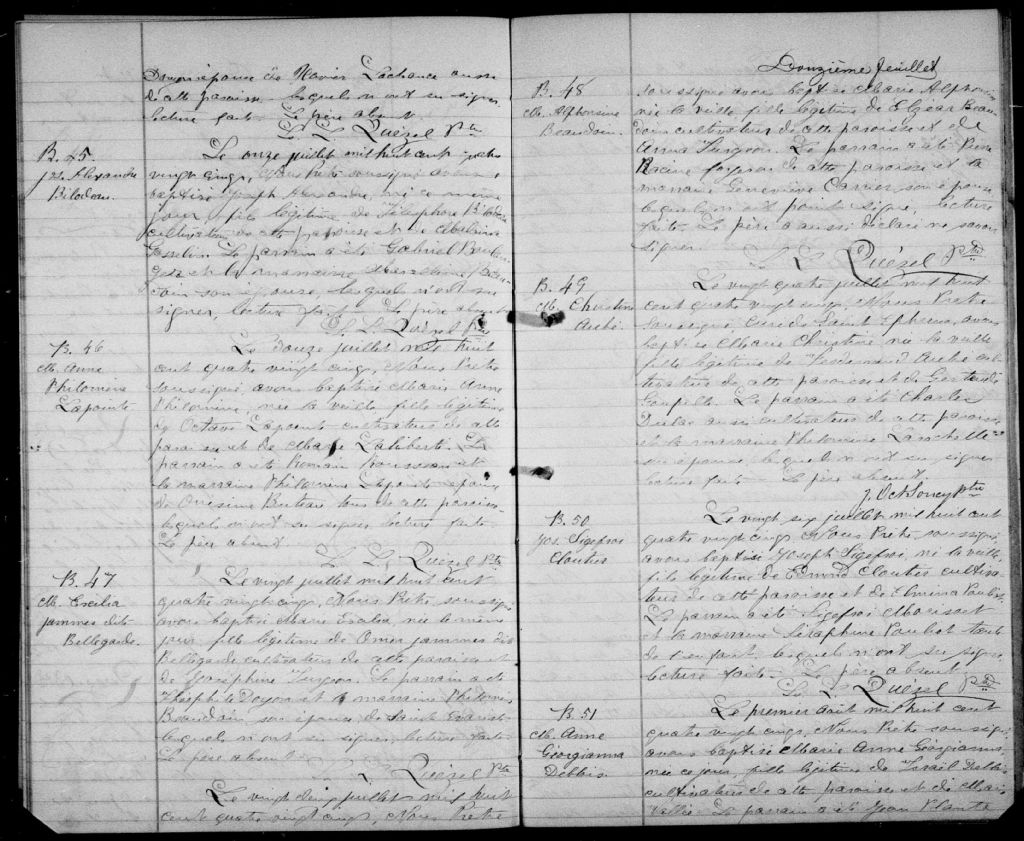 épouse de Xavier Lachance aussi
de cette paroisse lesquels n'ont su signer
lecture faite. Le père absent.
L. L. Quézel Ptre
B. 45.
Jos. Alexandre
Bilodeau.
Le onze juillet mil huit cent quatre
vingt cinq, Nous Prêtre soussigné avons
baptisé Joseph Alexandre, né ce même
jour, fils légitime de Télesphore Bilodeau
cultivateur de cette paroisse et de
Le parrain a été Gabriel
et la marraine
son épouse, lesquels n'ont su
signer, lecture faite. Le père absent
L. L. Quézel Ptre
B. 46
M. Anne
Philomène
Lapointe
Le douze juillet mil huit
cent quatre vingt cinq, Nous Prêtre
soussigné, avons baptisé Marie Anne
Philomène, née la veille, fille légitime
de Octave Lapointe cultivateur de cette
paroisse et de Marie Laliberté. Le
parrain a été Romain Rousseau et
la marraine Philomène Lapointe épouse
de Onésime Buteau tous de cette paroisse
lesquels n'ont su signer lecture faite.
Le père absent.
L. L. Quézel Ptre
B. 47
M. Exilia
Jammes dit
Bellegarde.
Le vingt juillet mil huit cent
quatre vingt cinq, Nous Prêtre, soussigné
avons baptisé Marie Exilia, née le même
jour, fille légitime de Omer Jammes dit
Bellegarde cultivateur de cette paroisse et
de Joséphine Turgeon. Le parrain a été
Théophile Doyon et la marraine Philomène
Beaudoin son épouse de Saint Evariste
lesquels n'ont su signer, lecture faite.
Le père absent.
L. L. Quézel Ptre
Le vingt juillet mil huit
cent quatre vingt cinq, Nous Prêtre
Douzième feuillet
B. 48
M. Alphonsine
Beaudoin.
soussigné avons baptisé Marie Alphonsine
née la veille fille légitime de Elzéar Beau-
doin cultivateur de cette paroisse et de
Anna Turgeon. Le parrain a été Pierre
Racine foyer de cette paroisse et la
marraine Geneviève Carrier son épouse
lesquels n'ont point signé, lecture
faite. Le père a aussi déclaré ne savoir
signer
L. L. Quézel Ptre
B. 49
M. Christine
Le vingt quatre juillet mil huit
cent quatre vingt cinq, Nous Prêtre
soussigné, curé de Saint Ephrem, avons
baptisé Marie Christine née la veille
fille légitime de Ferdinand cul-
tivateur de cette paroisse et de
Goupille. Le parrain a été Charles
Dulac aussi cultivateur de cette paroisse
et la marraine Philomène Larochelle
son épouse, lesquels n'ont su signer
lecture faite. Le père absent.
J. Oct. Soucy Ptre
B. 50
Jos. Sigefroi
Cloutier
Le vingt six juillet mil huit cent
quatre vingt cinq, Nous Prêtre, soussigné
avons baptisé Joseph Sigefroi, né la veille,
fils légitime de Edmond Cloutier cultiva-
teur de cette paroisse et de Elmina Pouliot.
Le parrain a été Sigefroi Morisset
et la marraine Séraphine Pouliot tante
de l'enfant, lesquels n'ont su signer
lecture faite. Le père absent.
L. L. Quézel Ptre
B. 51
M. Anne
Giorgianna
Deblois
Le premier août mil huit cent
quatre vingt cinq, Nous Prêtre soussigné
avons baptisé Marie Anne Giorgianna
née ce jour, fille légitime de Israël Deblois
cultivateur de cette paroisse et de Marie
Vallée. Le parrain a été Jean Plante